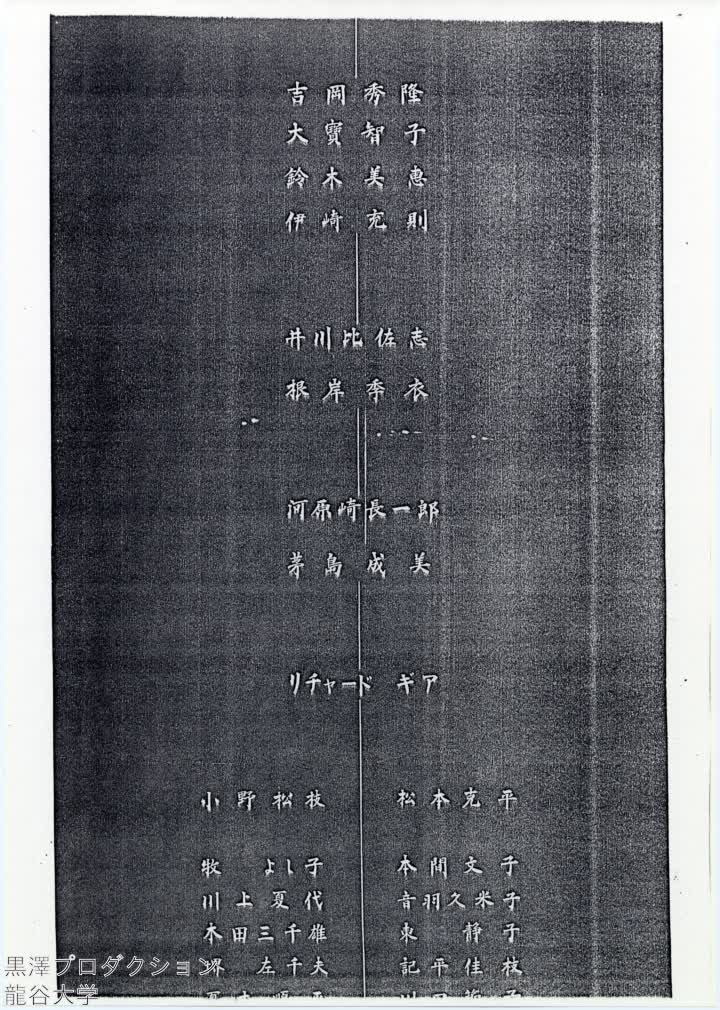 吉岡秀隆
大寶智子
鈴木美恵
伊崎充則
井川比佐志
根岸季衣
河原崎長一郎
茅島成美
リチャード ギア
小野松枝 松本克平
牧 よし子 本間文子
川上夏代 音羽久米子
木田三千雄 東 静子
堺 左千夫 記平佳枝
夏木順平 川口節子
黒澤プロダクション
龍谷大学